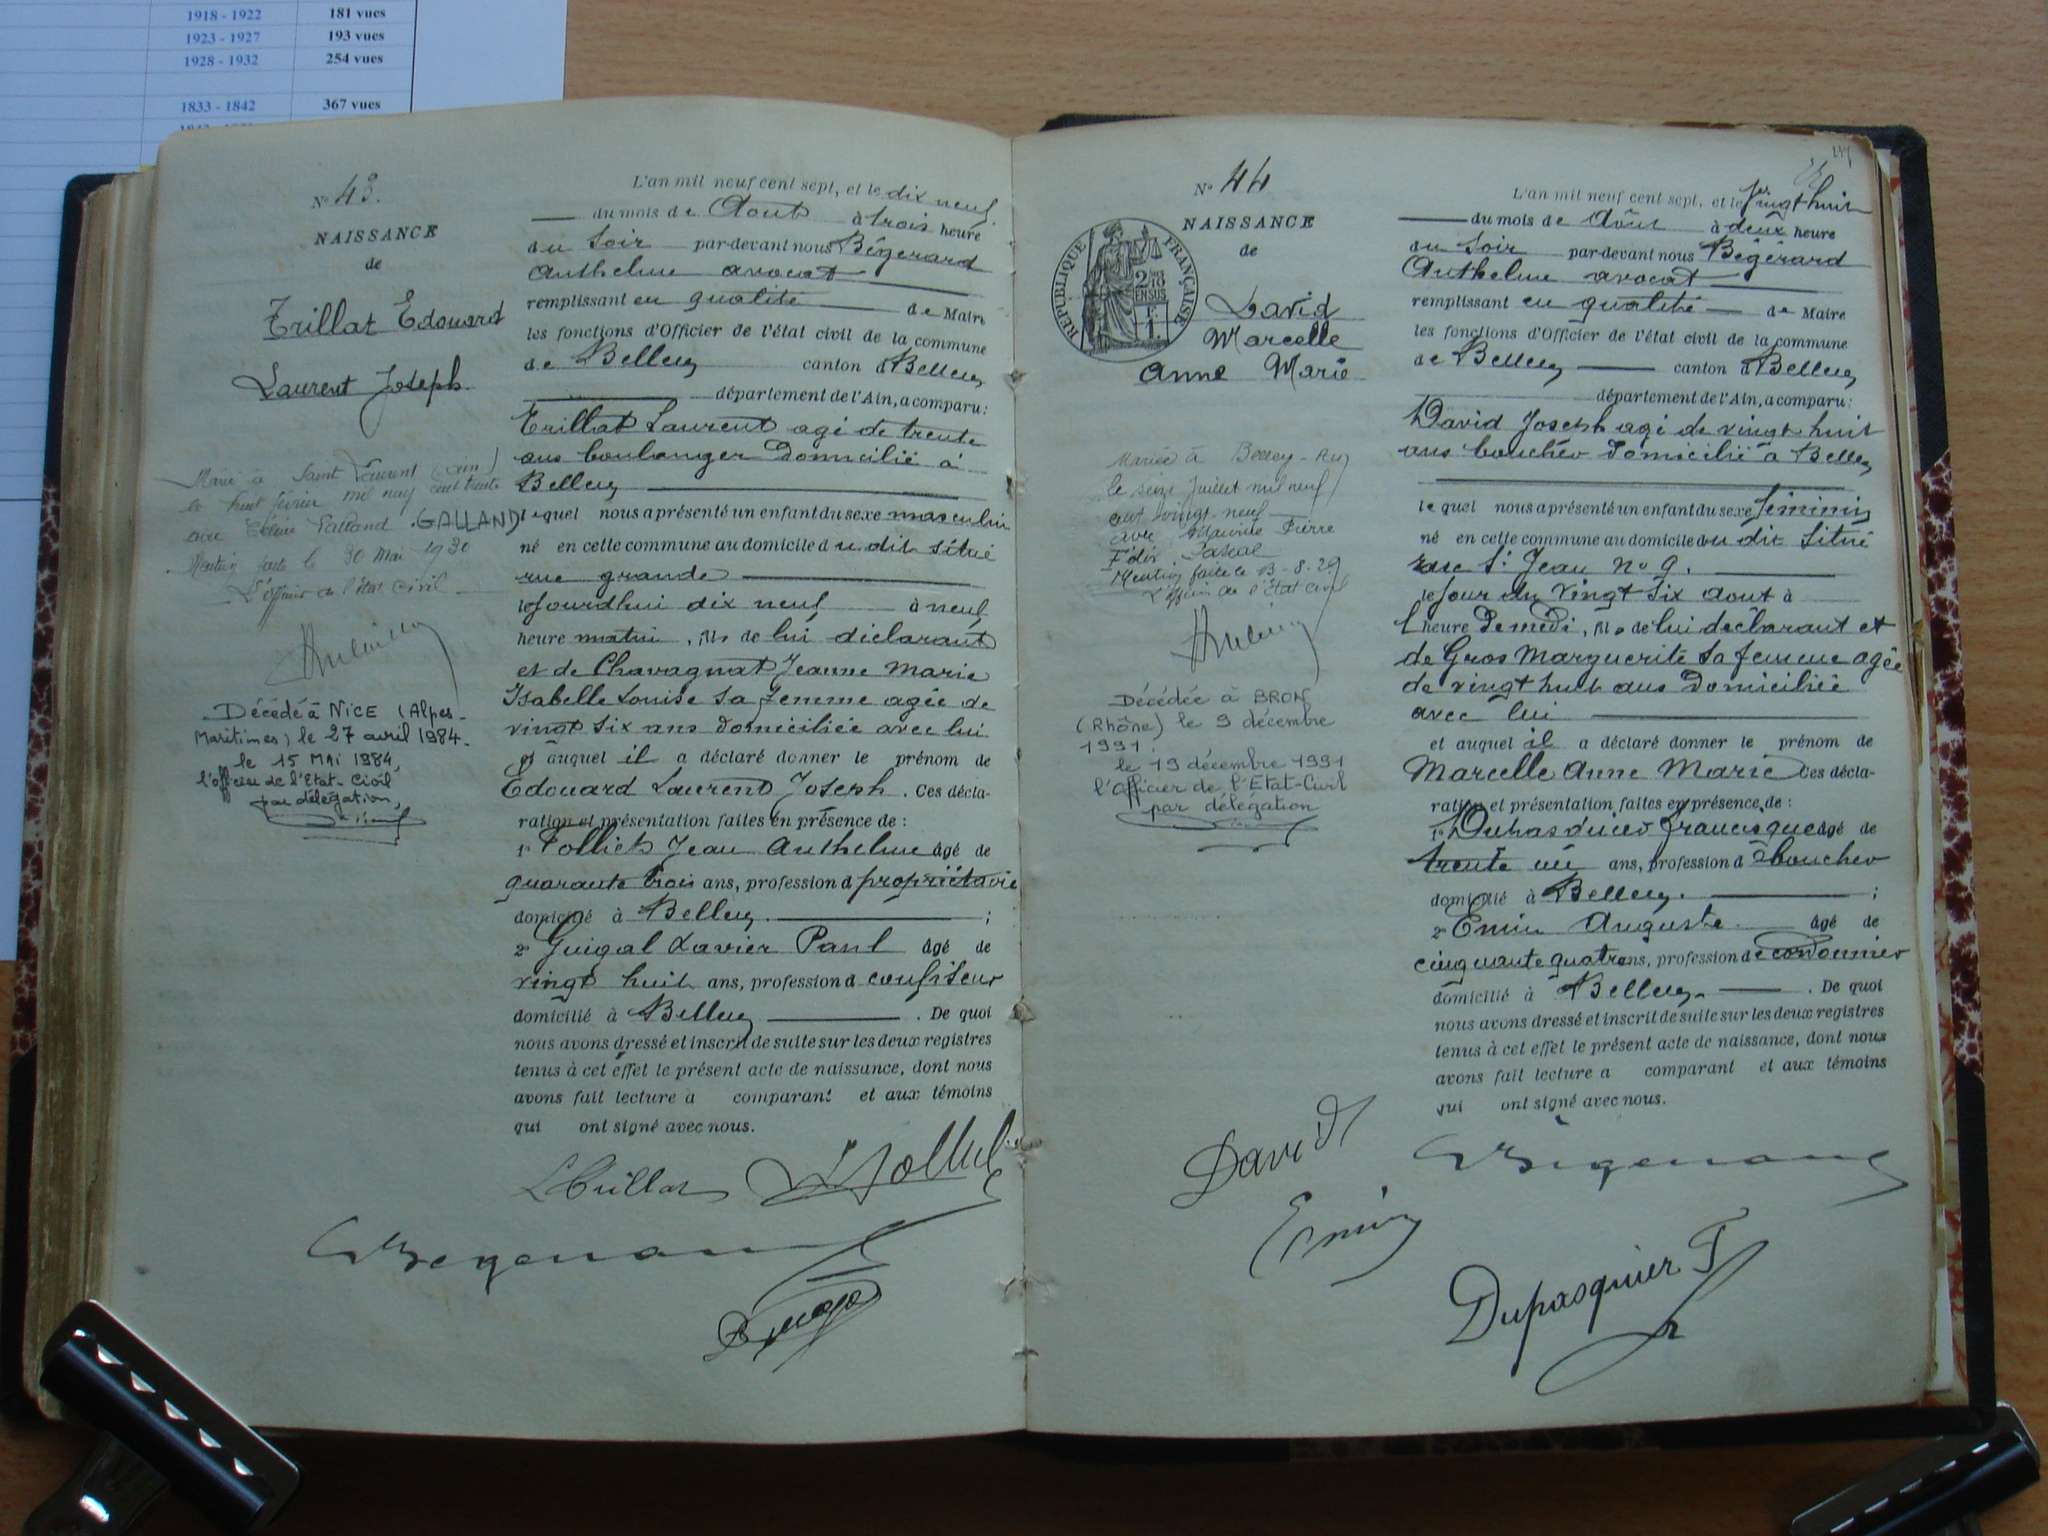 1918 - 1922 181 vues
1923 - 1927 193 vues
1928 - 1932 254 vues
1833 - 1842 367 vues
N° 43.
NAISSANCE
de
Trillat Edouard
Laurent Joseph
Marié à Saint Laurent (Ain)
le huit février mil neuf cent trente
avec Galland . GALLAND
Mention faite le 30 Mai 1930
L'officier de l'état civil
Décédé à NICE (Alpes-
Maritimes) le 27 avril 1984.
le 15 MAI 1984,
l'officier de l'Etat-Civil
par délégation,
L'an mil neuf cent sept, et le dix neuf
du mois de Aout à trois heure
du soir par-devant nous Bégérard
Anthelme avocat
remplissant en qualité de Maire
les fonctions d'Officier de l'état civil de la commune
de Belley canton d Belley
département de l'Ain, a comparu :
Trillat Laurent agé de trente
ans boulanger Domicilié à
Belley
lequel nous a présenté un enfant du sexe masculin
né en cette commune au domicile du dit situé
rue grande
lejourdhui dix neuf à neuf
heure matin, fils de lui déclarant
et de Chavagnat Jeanne Marie
Isabelle Louise sa femme agée de
vingt six ans domiciliée avec lui
et auquel il a déclaré donner le prénom de
Edouard Laurent Joseph. Ces décla-
ration et présentation faites en présence de :
1° Folliet Jean Anthelme âgé de
quarante trois ans, profession d propriétaire
domicilié à Belley ;
2° Guigal Xavier Paul âgé de
vingt huit ans, profession d confiseur
domicilié à Belley . De quoi
nous avons dressé et inscrit de suite sur les deux registres
tenus à cet effet le présent acte de naissance, dont nous
avons fait lecture a comparant et aux témoins
qui ont signé avec nous.
LTrillat
N° 44
NAISSANCE
de
REPUBLIQUE FRANÇAISE
2/10 EN SUS
David
Marcelle
Anne Marie
Mariée à Belley - Ain
le seize Juillet mil neuf
cent vingt neuf
avec Pierre
Pascal
Mention faite le 13-8-29
L'officier de l'Etat Civil
Décédée à BRON
(Rhône) le 9 décembre
1991.
le 19 décembre 1991
l'Officier de l'Etat-Civil
par délégation
L'an mil neuf cent sept, et le vingt huit
du mois de Août à deux heure
du soir par-devant nous Bégérard
Anthelme avocat
remplissant en qualité de Maire
les fonctions d'Officier de l'état civil de la commune
de Belley canton d Belley
département de l'Ain, a comparu :
David Joseph agé de vingt huit
ans boucher domicilié à Belley
lequel nous a présenté un enfant du sexe féminin
né en cette commune au domicile du dit situé
rue St Jean n° 9.
lejour du vingt six aout à
1 heure demedi, fils de lui déclarant et
de Gros Marguerite sa femme agée
de vingt huit ans domiciliée
avec lui
et auquel il a déclaré donner le prénom de
Marcelle Anne Marie Ces décla-
ration et présentation faites en présence de :
1° Dupasquier francisque âgé de
trente un ans, profession d boucher
domicilié à Belley. ;
2° Emin Auguste âgé de
cinquante quatre ans, profession d cordonnier
domicilié à Belley. . De quoi
nous avons dressé et inscrit de suite sur les deux registres
tenus à cet effet le présent acte de naissance, dont nous
avons fait lecture a comparant et aux témoins
qui ont signé avec nous.
David
Emin
Dupasquier F